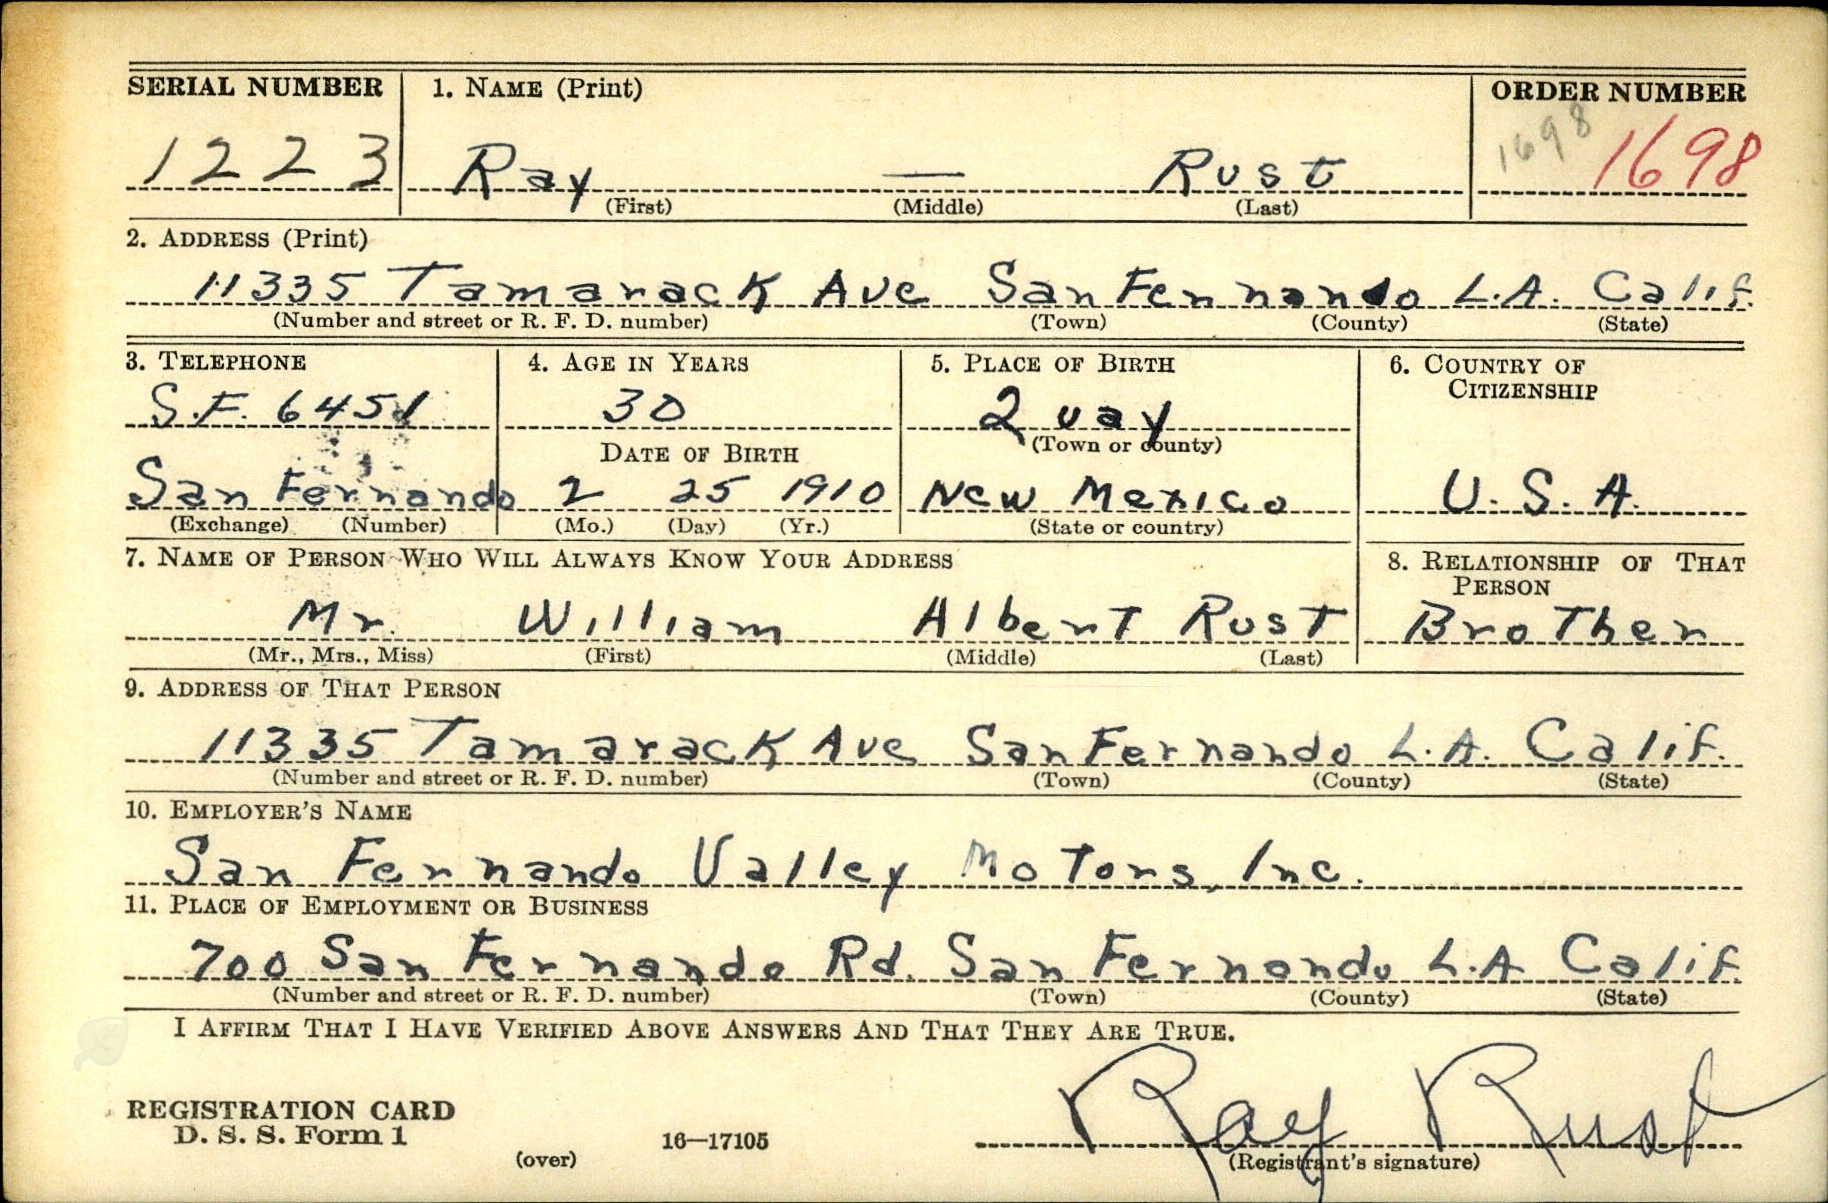 SERIAL NUMBER 1. NAME (Print) ORDER NUMBER
1223 Ray — Rust 1698 1698
(First) (Middle) (Last)
2. ADDRESS (Print)
11335 Tamarack Ave San Fernnando L.A. Calif.
(Number and street or R. F. D. number) (Town) (County) (State)
3. TELEPHONE 4. AGE IN YEARS 5. PLACE OF BIRTH 6. COUNTRY OF
CITIZENSHIP
S.F. 6451 30 Quay
DATE OF BIRTH (Town or county)
San Fernando 2 25 1910 New Mexico U.S.A.
(Exchange) (Number) (Mo.) (Day) (Yr.) (State or country)
7. NAME OF PERSON WHO WILL ALWAYS KNOW YOUR ADDRESS 8. RELATIONSHIP OF THAT
PERSON
Mr. William Albert Rust Brother
(Mr., Mrs., Miss) (First) (Middle) (Last)
9. ADDRESS OF THAT PERSON
11335 Tamarack Ave San Fernando L.A. Calif.
(Number and street or R. F. D. number) (Town) (County) (State)
10. EMPLOYER'S NAME
San Fernando Valley Motors, Inc.
11. PLACE OF EMPLOYMENT OR BUSINESS
700 San Fernando Rd. San Fernando L.A Calif.
(Number and street or R. F. D. number) (Town) (County) (State)
I AFFIRM THAT I HAVE VERIFIED ABOVE ANSWERS AND THAT THEY ARE TRUE.
REGISTRATION CARD
D. S. S. Form 1 16—17105 Ray Rust
(over) (Registrant's signature)